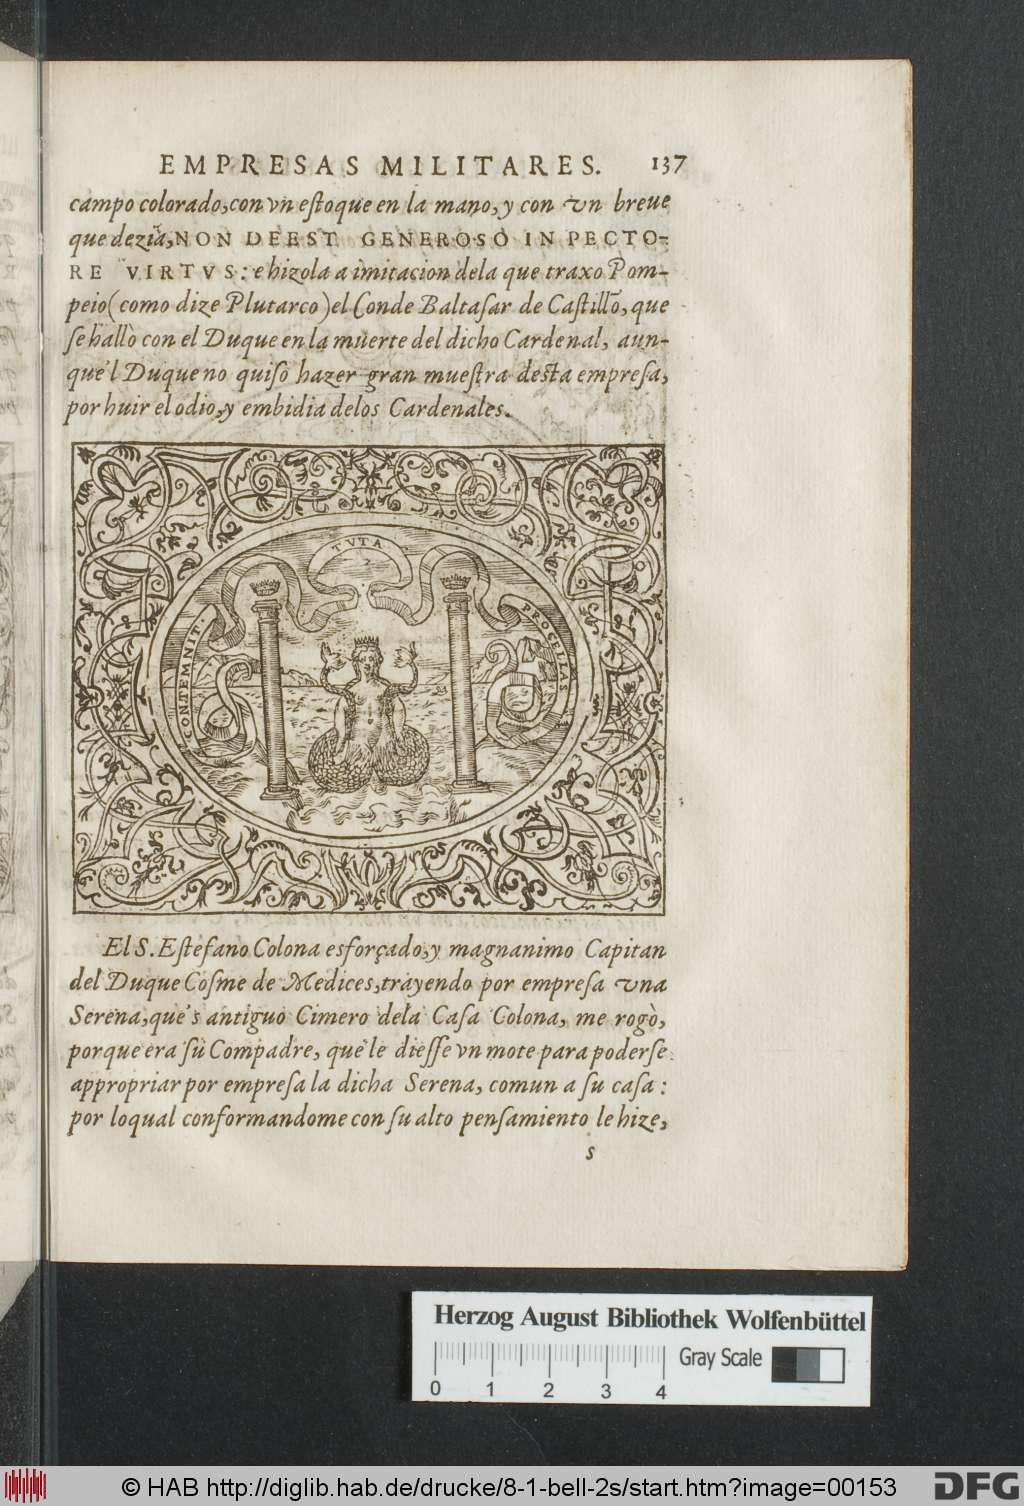 EMPRESAS MILITARES. 137
campo colorado, con vn estoque en la mano, y con vn breue
que dezia, NON DEEST GENEROSO IN PECTO-
RE VIRTVS: e hizola a imitacion dela que traxo Pom-
peio (como dize Plutarco) el Conde Baltasar de Castillõ, que
se hallò con el Duque en la muerte del dicho Cardenal, aun-
que'l Duque no quiso hazer gran muestra desta empresa,
por huir el odio, y embidia delos Cardenales.
TVTA
CONTEMNIT.
PROCELLAS
El S. Estefano Colona esforçado, y magnanimo Capitan
del Duque Cosme de Medices, trayendo por empresa vna
Serena, que's antiguo Cimero dela Casa Colona, me rogò,
porque era su Compadre, que le diesse vn mote para poderse
appropriar por empresa la dicha Serena, comun a su casa:
por loqual conformandome con su alto pensamiento le hize,
s
Herzog August Bibliothek Wolfenbüttel
Gray Scale
0 1 2 3 4
© HAB http://diglib.hab.de/drucke/8-1-bell-2s/start.htm?image=00153
DFG